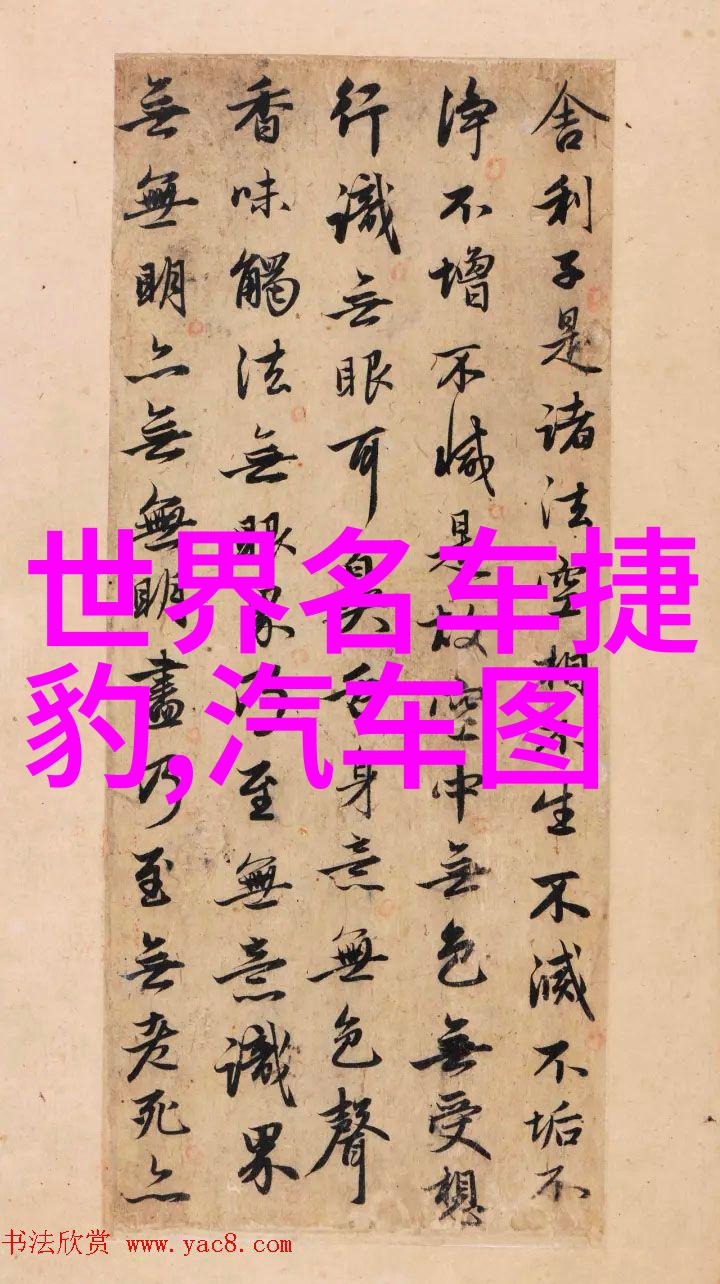 舍利子是諸法空相不生不滅不垢不
淨不增不減是故空中無色無受想
行識無眼耳鼻舌身意無色聲
香味觸法無眼界乃至無意識界
無無明亦無無明盡乃至無老死亦
世界名车捷
豹,汽车图
书法欣赏 www.yac8.com